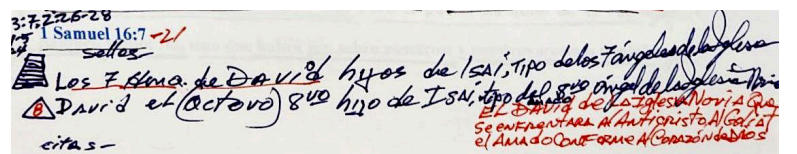 3:7,2:26-28
1 Samuel 16:7 -21
sellos
Los 7 Hma. de DAVID hijos de ISAÍ, TIPO de los 7 ángeles de la Iglesia
8 David el (Octavo) 8vo hijo de ISAÍ, tipo del 8vo ángel de la Iglesia Novia
EL DAVID de LA Iglesia NOVIA QUE
Se ENFRENTARA Al ANTicristo Al Goliat
el AMADO CONFORME Al CORAZÓN de DIOS
citas-